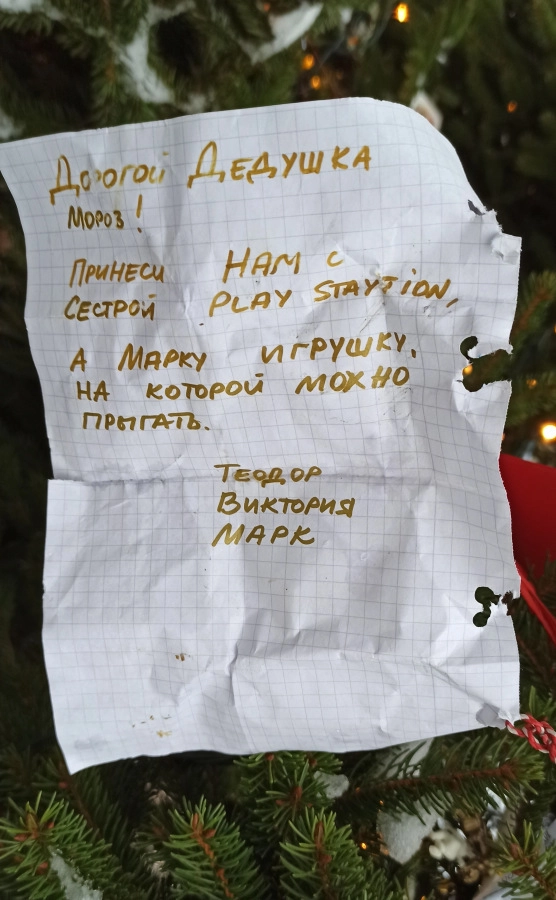 Дорогой Дедушка
Мороз!
Принеси нам с
сестрой PLAY STAYTION,
а Марку игрушку,
на которой можно
прыгать.
Теодор
Виктория
Марк